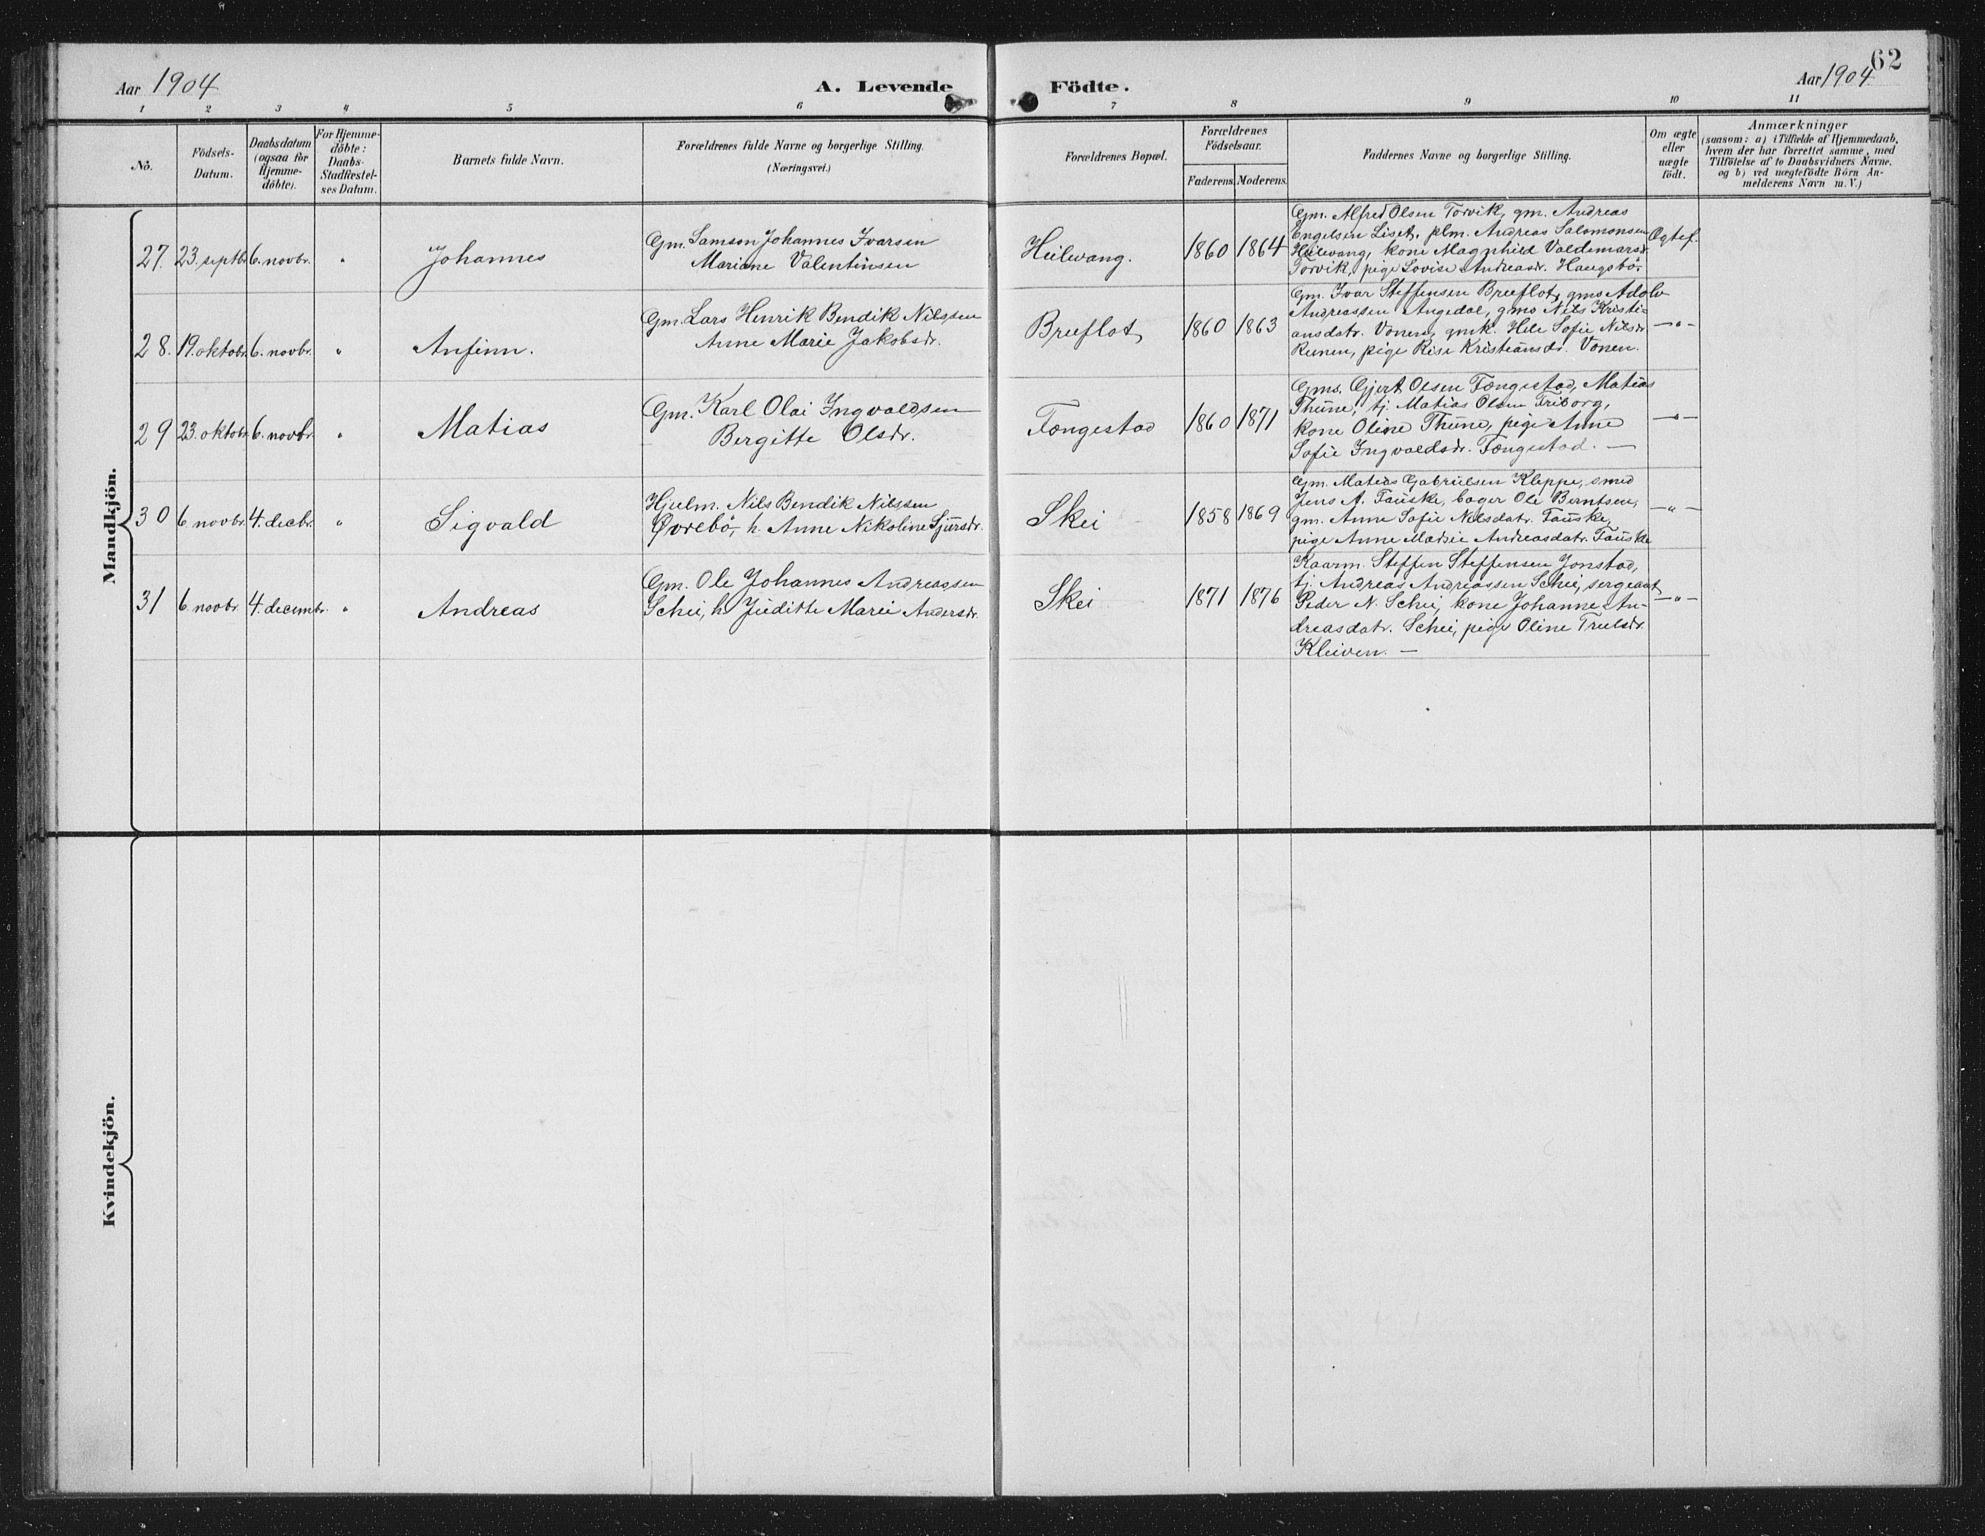 62
Aar 1904
A. Levende
Födte.
Aar 1904
1 2 3 4 5 6 7 8 9 10 11
No.
Födsels-
Datum.
Daabsdatum
(ogsaa for
Hjemme-
döbte).
For Hjemme-
döbte:
Daabs-
Stadfæstel-
ses Datum.
Barnets fulde Navn.
Forældrenes fulde Navne og borgerlige Stilling.
(Næringsvei.)
Forældrenes Bopæl.
Forældrenes
Födselsaar.
Faderens. Moderens.
Faddernes Navne og borgerlige Stilling.
Om ægte
eller
uægte
födt.
Anmærkninger
(saasom: a) i Tilfælde af Hjemmedaab,
hvem der har forrettet samme, med
Tilföielse af to Daabsvidners Navne,
og b) ved uægtefödte Börn An-
melderens Navn m. V.)
Mandkjön.
27. 23. septbr 6. novbr. " Johannes
Gm. Samson Johannes Ivarsen
Mariane Valentinsen
Heilevang. 1860 1864
Gm. Alfred Olsen Torvik, gm. Andreas
Engelsen Liset, plm. Andreas Salomonsen
Heilevang, kone Magnhild Valdemarsdr.
Torvik, pige Lovise Andreasdr. Haugsbö.
Ægtef.
28. 19. oktobr. 6. novbr. " Anfinn.
Gm. Lars Henrik Bendik Nilssen
Anne Marie Jakobsdr.
Breeflot, 1860 1863
Gm. Ivar Steffensen Breeflot, gms Adolv
Andreassen Angedal, gms Nils Kristi-
ansdatr. Vonen, gmk. Sofie Nilsdr.
pige Kristiansdr. Vonen.
—"—
29 23. oktobr. 6. novbr. " Matias
Gm. Karl Olai Ingvaldsen
Bergitte Olsdr.
Fængestad 1860 1871
Gms. Gjert Olsen Fængestad, Matias
Thune, tj. Matias Olsen Friborg,
kone Oline Thune, pige Anne
Sofie Ingvaldsdr. Fængestad. —
—"—
30 6 novbr. 4. decbr. " Sigvald
Hjulm. Nils Bendik Nilssen
Øvrebö, h. Anne Nikoline Sjursdr.
Skei 1858 1869
Gm. Matias Gabrielsen Kleppe, smed
Jens A. Fauske, bager Ole Berntsen,
gm. Anne Sofie Nilsdatr. Fauske,
pige Anne Marie Andreasdatr. Fauske
—"—
31 6 novbr. 4. decembr. " Andreas
Gm. Ole Johannes Andreassen
Schei, h. Juditte Marei Andersdr.
Skei 1871 1876
Kaarm. Steffen Steffensen Jonstad,
tj. Andreas Andreassen Schei, sergeant
Peder N. Schei, kone Johanne An-
dreasdatr. Schei, pige Oline Truelsdr.
Kleiven. —
—"—
Kvindekjön.